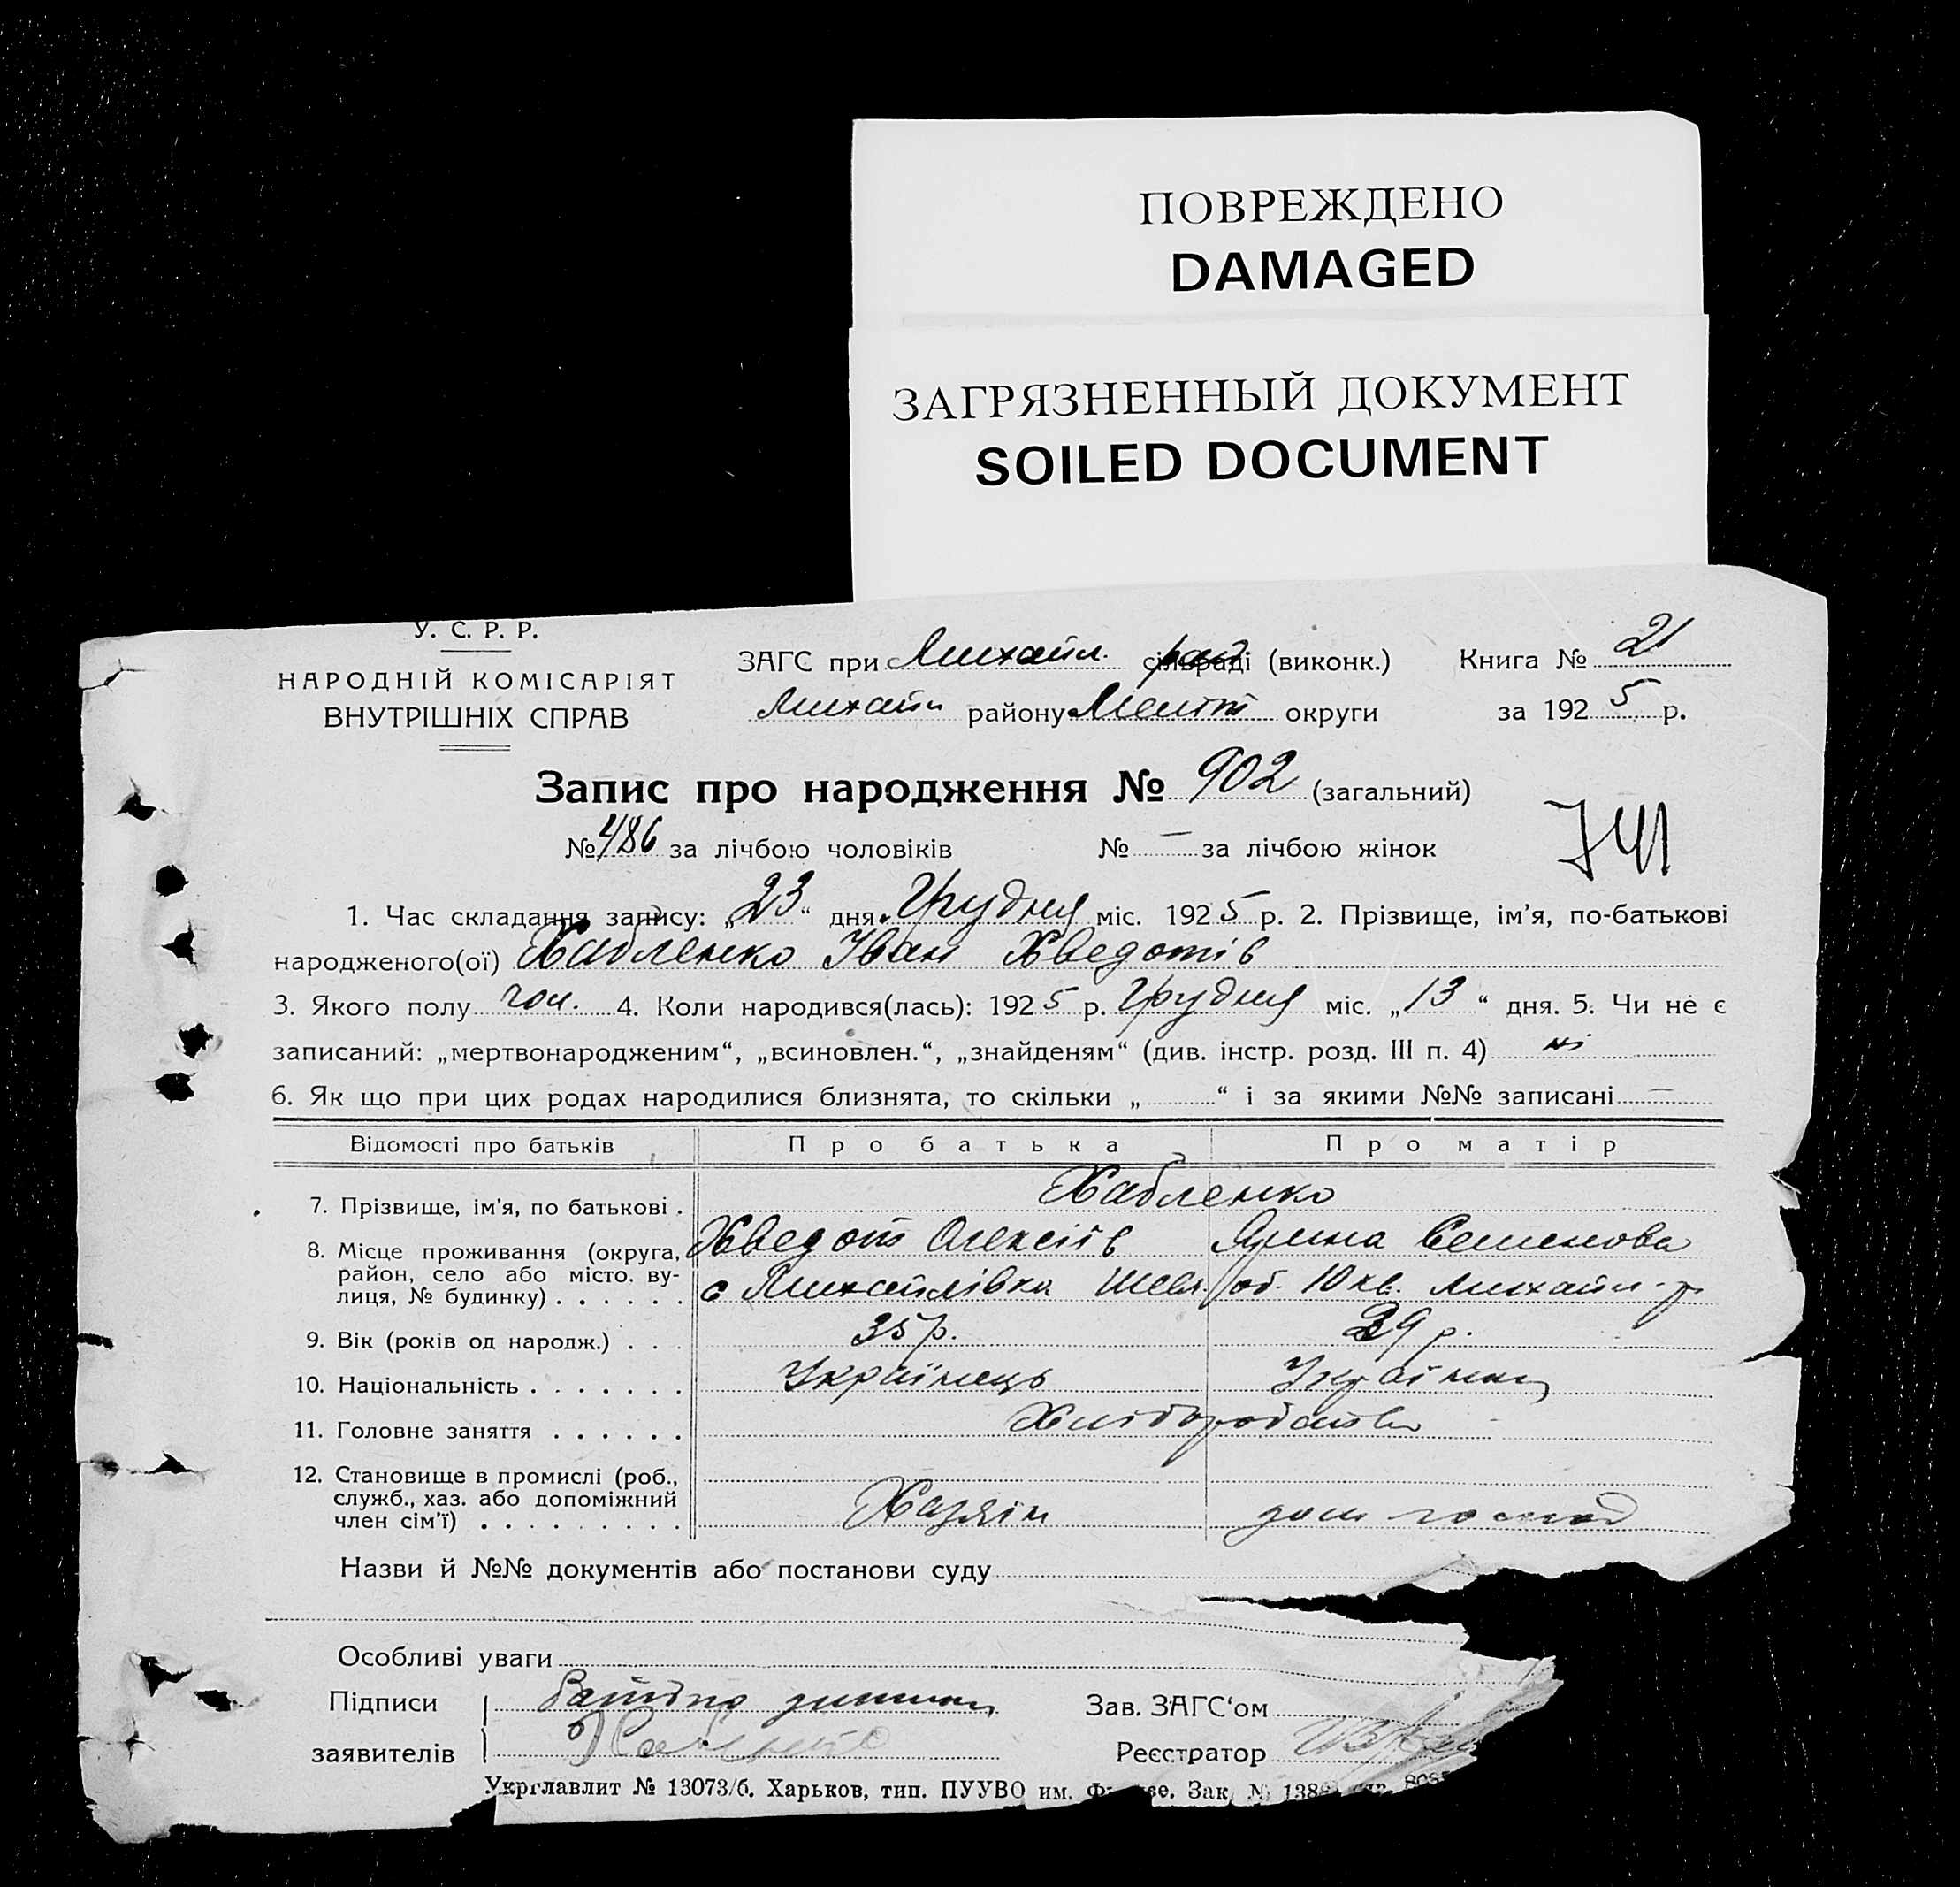 ПОВРЕЖДЕНО
DAMAGED
ЗАГРЯЗНЕННЫЙ ДОКУМЕНТ
SOILED DOCUMENT
У. С. Р. Р.
НАРОДНІЙ КОМІСАРІЯТ
ВНУТРІШНІХ СПРАВ
ЗАГС при Михайл. сільраді (виконк.) Книга № 21
Михайл району Меліт округи за 1925 р.
Запис про народження № 902 (загальний)
№ 486 за лічбою чоловіків № — за лічбою жінок
741
1. Час складання запису: „23“ дня Грудня міс. 1925 р. 2. Прізвище, ім'я, по-батькові
народженого(ої) Хабленко Іван Хведотів
3. Якого полу чол. 4. Коли народився(лась): 1925 р. Грудня міс. „13“ дня. 5. Чи не є
записаний: „мертвонародженим“, „всиновлен.“, „знайденям“ (див. інстр. розд. III п. 4) ні
6. Як що при цих родах народилися близнята, то скільки „ “ і за якими №№ записані —
Відомості про батьків Про батька Про матір
7. Прізвище, ім'я, по батькові . Хабленко
Хведот Олексіїв Ярина Семенова
8. Місце проживання (округа, район, село або місто. вулиця, № будинку) . . . . . . с Михайлівка Шевч. об. 10 кв. Михайл. р
9. Вік (років од народж.) . . . 35 р. 39 р.
10. Національність . . . . . . . Українець Українка
11. Головне заняття . . . . . . Хліборобство
12. Становище в промислі (роб., служб., хаз. або допоміжний член сім'ї) . . . . . . . . . Хазяїн дом господ
Назви й №№ документів або постанови суду
Особливі уваги
Підписи Зав. ЗАГС'ом
заявителів Реєстратор
Укрглавлит № 13073/б. Харьков, тип. ПУУВО им. Зак. №